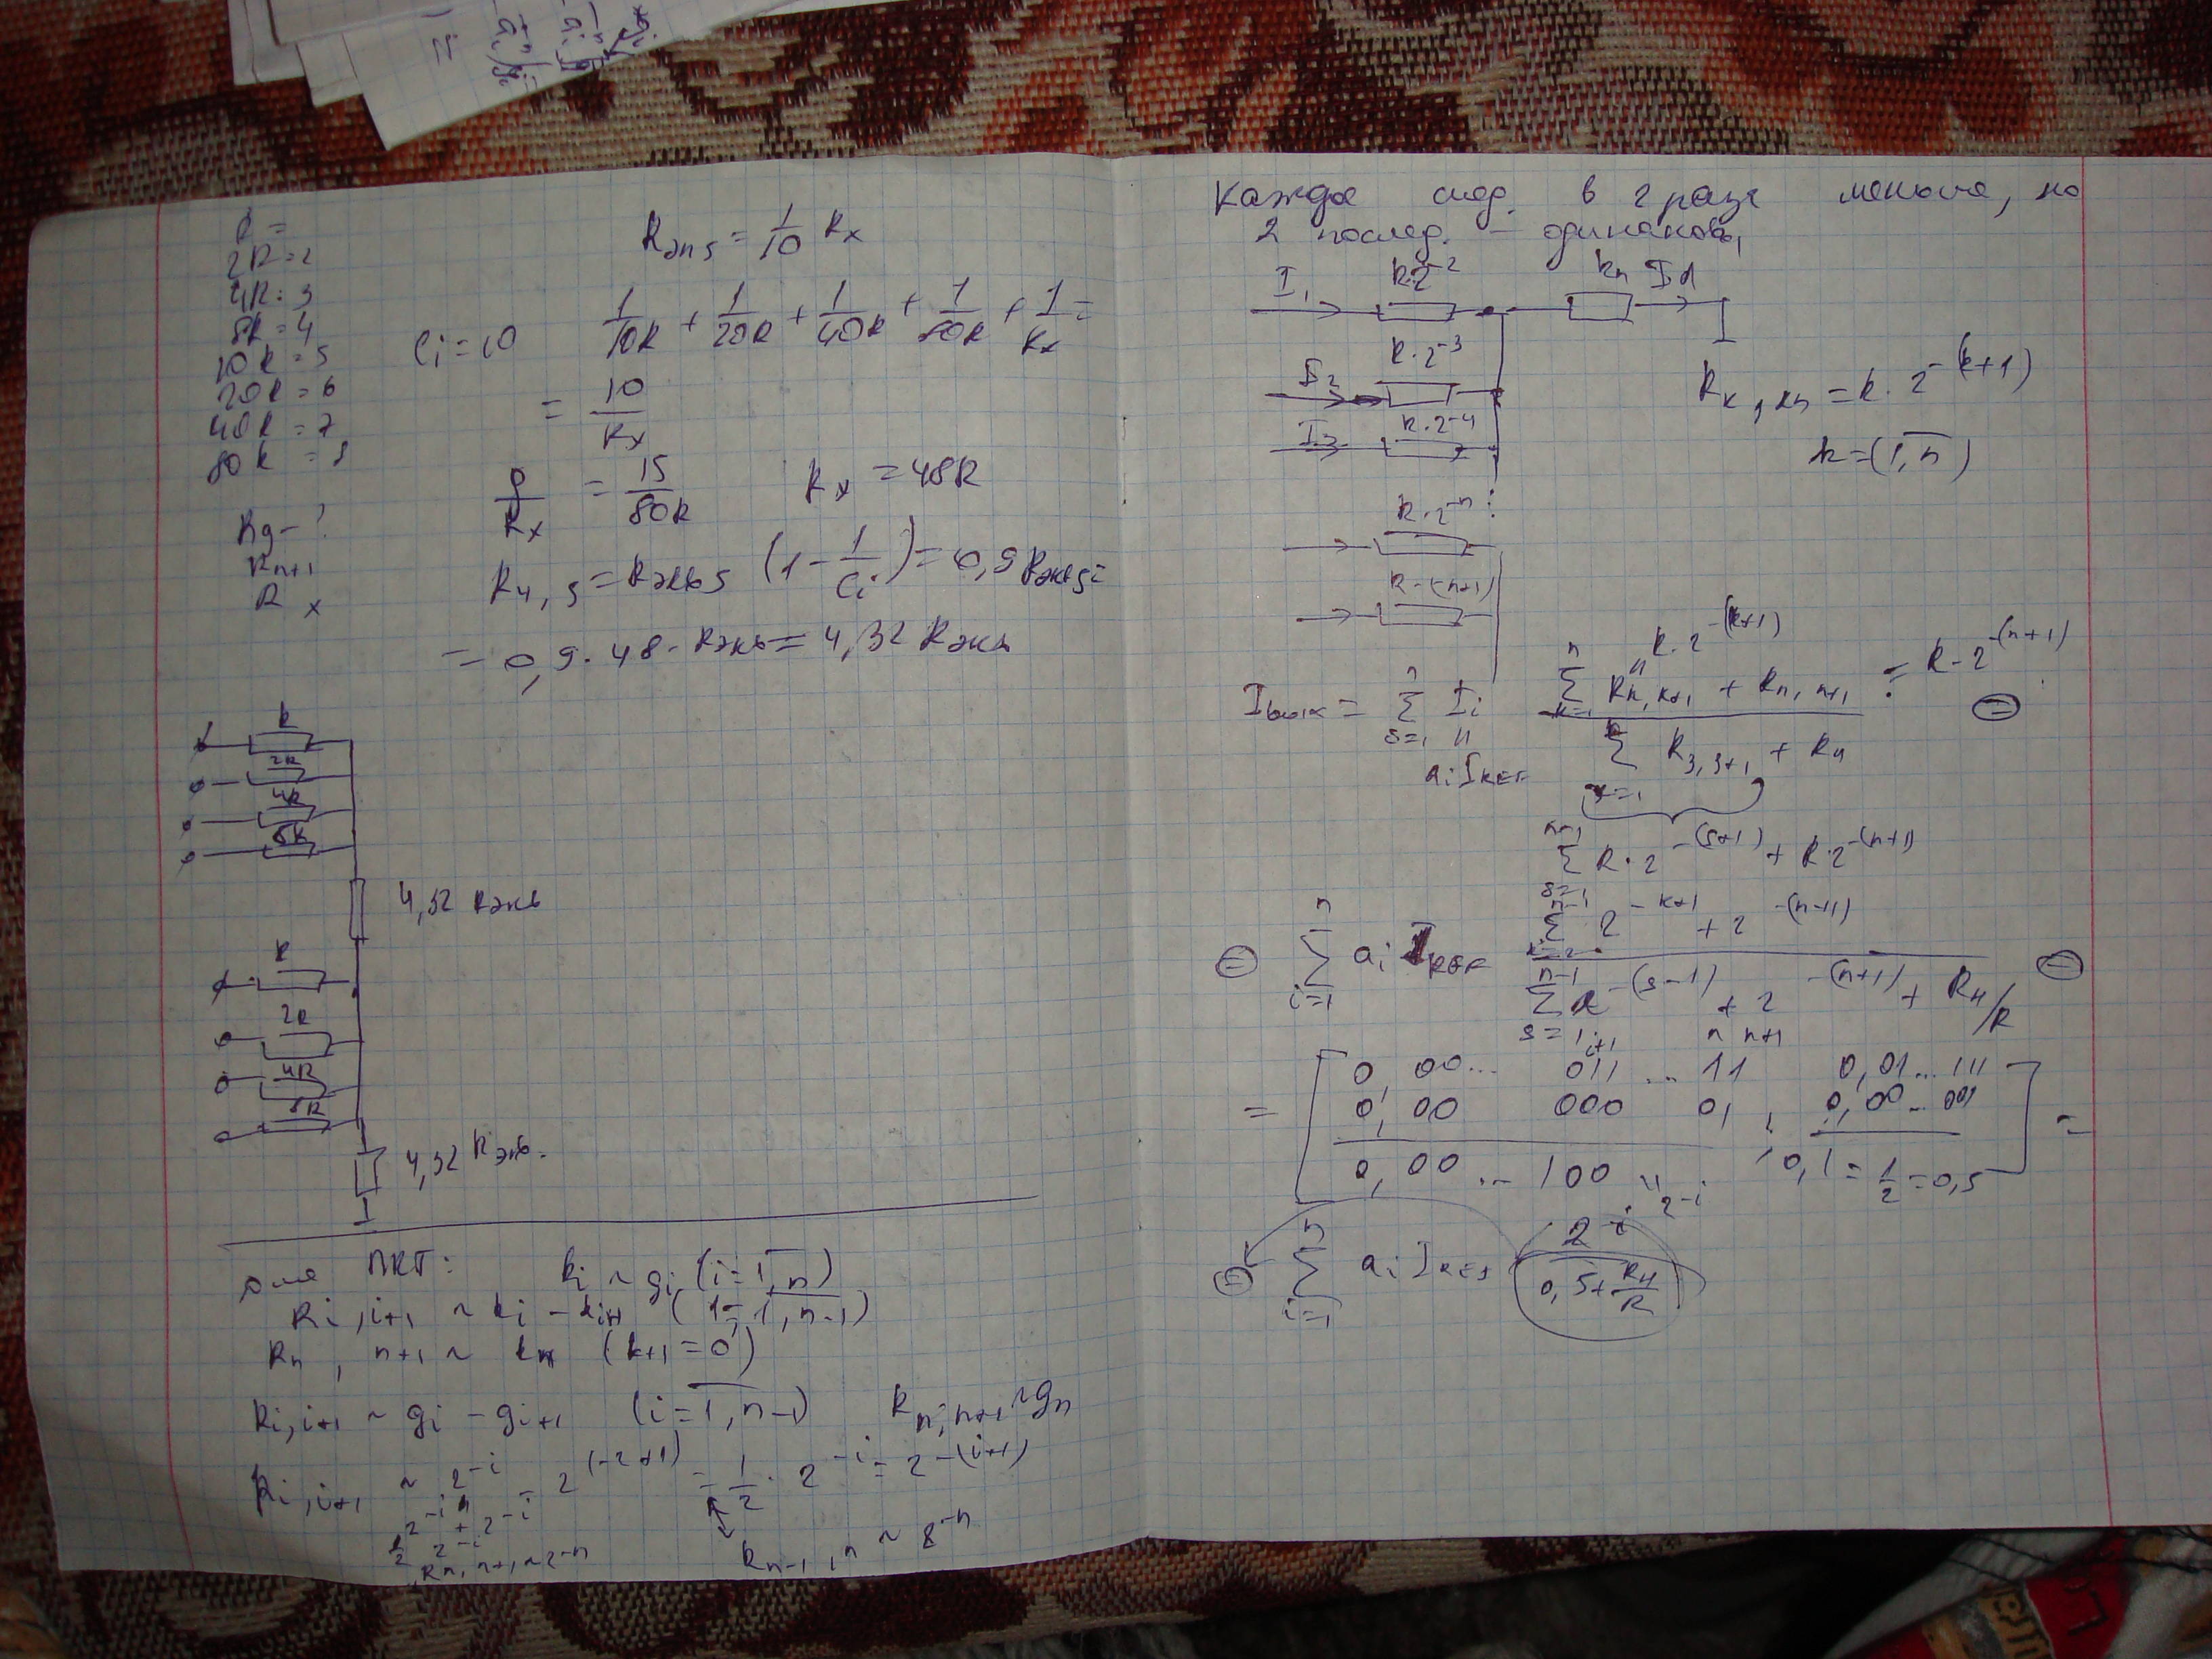 2R=2
4R=3
8R=4
10R=5
20R=6
40R=7
80R=8
Rg-?
Rn+1
R x
Rэп5 = 1/10 Rx
Ci=10
1/10R + 1/20R + 1/40R + 1/80R + 1/Rx =
= 10/Rx
9/Rx = 15/80R Rx = 48R
R4,5 = Rэкв5 (1 - 1/Ci) = 0,9 Rэкв5 =
= 0,9 · 48 · Rэкв = 4,32 Rэкв
R
2R
4R
8R
4,32 Rэкв
R
2R
4R
8R
4,32 Rэкв.
для ПКТ: ki ~ gi (i=1,n)
Ri,i+1 ~ ki - ki+1 (i=1,n-1)
Rn,n+1 ~ kn (k+1=0)
Ri,i+1 ~ gi - gi+1 (i=1,n-1) Rn,n+1 ~ gn
Ri,i+1 ~ 2^-i - 2^(-2+1) = 1/2 · 2^-i = 2^-(i+1)
Rn,n+1 ~ 2^-n
Rn-1,n ~ 2^-n
Каждое след. в 2 раза меньше, но
2 послед. - одинаковы
I1 R·2^-2 Rn Id
I2 R·2^-3
I3 R·2^-4
Rk,kn = R·2^-(k+1)
k=(1,n)
R·2^-n
R-(n+1)
R·2^-(k+1)
Iвых = Σ s=1 n Ii Σ k=1 n Rk,k+1 + Rn,n+1 = R-2^-(n+1)
ai IREF
Σ R3,3+1 + Rн
Σ s=1 R·2^-(s+1) + R·2^-(n+1)
Σ i=1 n ai IREF Σ n-1 2^-k+1 + 2^-(n+1)
Σ n-1 2^-(s-1) + 2^-(n+1) + Rн/R
s=1 i+1 n n+1
= 0,00... 011 ... 11 0,01...111
0,00 000 01, 0,00...001 =
0,00 ... 100 2^-i ; 0,1 = 1/2 = 0,5
Σ i=1 n ai IREF 2^-i / 0,5+Rн/R